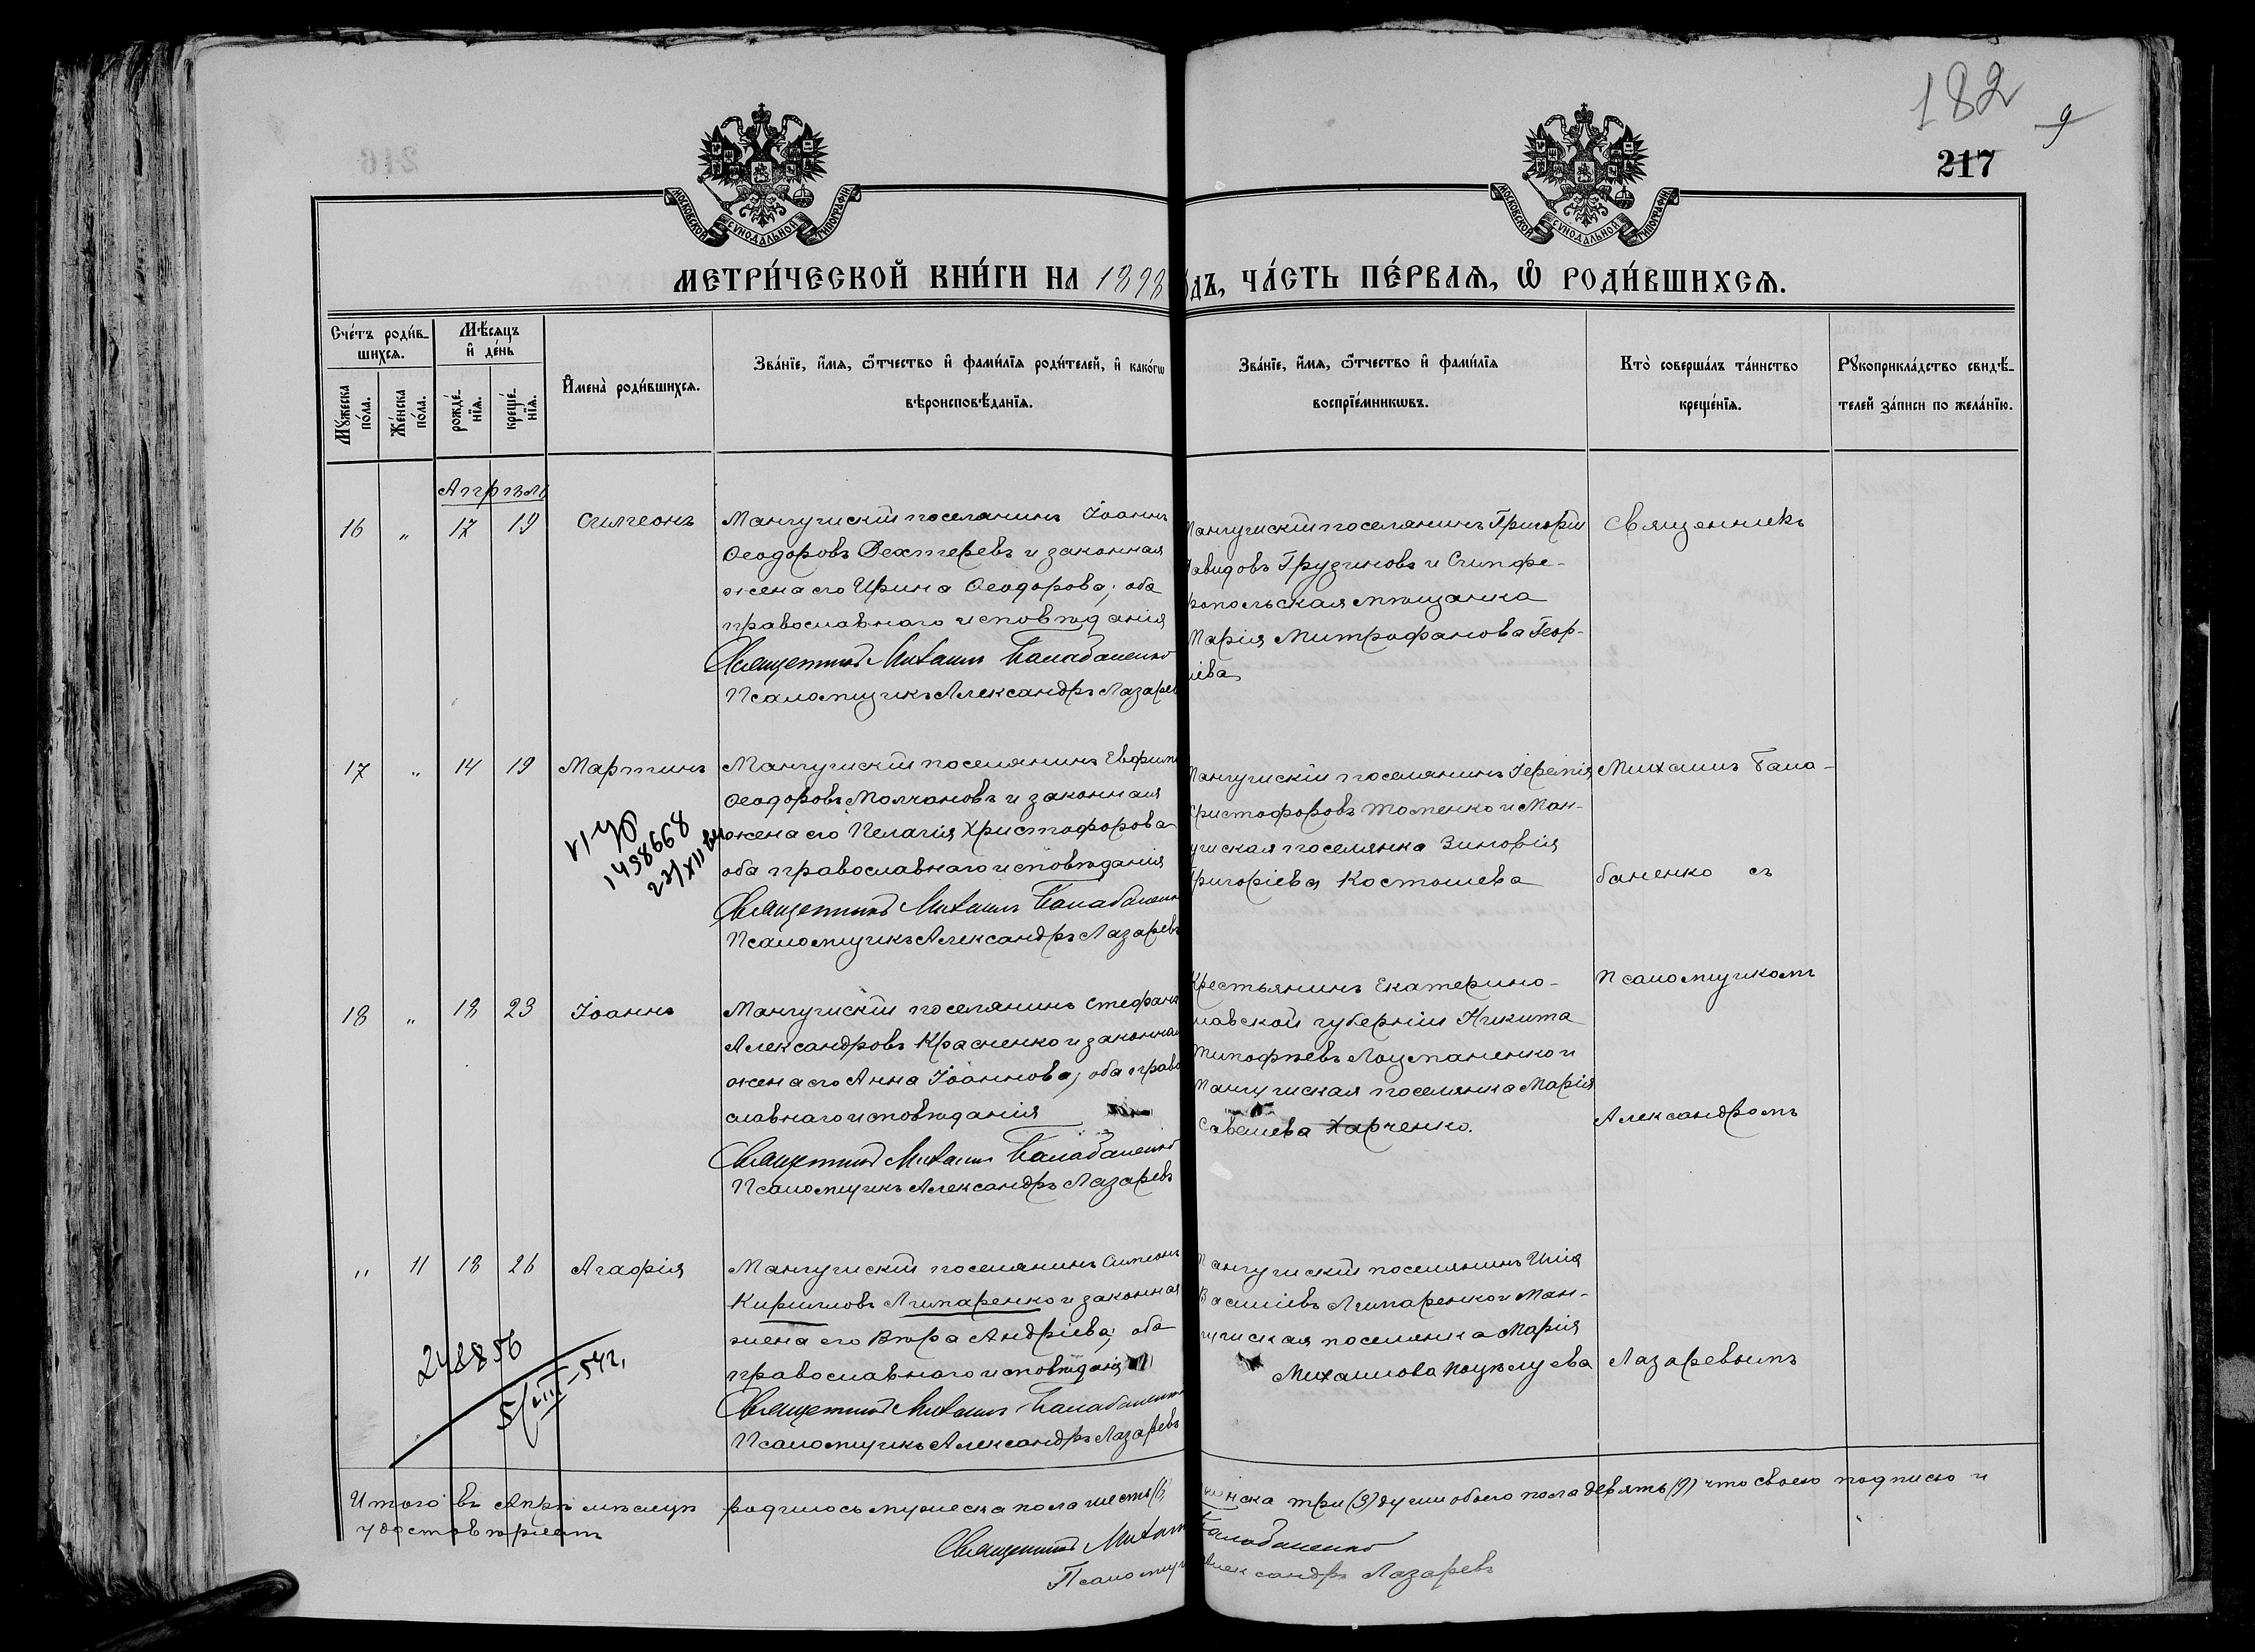 182
9
217
216
МОСКОВСКОЙ СУНОДАЛЬНОЙ ТИПОГРАФІИ
МОСКОВСКОЙ СУНОДАЛЬНОЙ ТИПОГРАФІИ
МЕТРИ́ЧЕСКОЙ КНИ́ГИ НА 1898 ГОДЪ, ЧА́СТЬ ПЕ́РВАѦ, Ѡ РОДИ́ВШИХСѦ.
Сче́тъ роди́в-
шихсѧ.
Мꙋ́жеска по́ла.
Же́нска по́ла.
Мѣ́сѧцъ и де́нь
рожде́нїѧ.
креще́нїѧ.
Имена̀ роди́вшихсѧ.
Зва́нїе, и́мѧ, ѻ҆́тчество и фами́лїѧ роди́телей, и како́гѡ
вѣроисповѣ́данїѧ.
Зва́нїе, и́мѧ, ѻ҆́тчество и фами́лїѧ
воспрїе́мникѡвъ.
Кто̀ соверша́лъ та́инство
креще́нїѧ.
Рꙋкоприкла́дство свидѣ́-
телей за́писи по жела́нїю.
Апрѣль
16 " 17 19 Симеонъ
Мангушскій поселянинъ Іоаннъ
Ѳеодоровъ Дехтеревъ и законная
жена его Ирина Ѳеодорова; оба
православнаго исповѣданія
Священникъ Михаилъ Балабаненко
Псаломщикъ Александръ Лазаревъ
Мангушскій поселянинъ Григорій
Давидовъ Грузиновъ и Симфе-
ропольская мѣщанка
Марія Митрофанова Геор-
гіева
Священникъ
17 " 14 19 Мартинъ
1438668
Мангушскій поселянинъ Евфимій
Ѳеодоровъ Молчановъ и законная
жена его Пелагія Христофорова
оба православнаго исповѣданія
Священникъ Михаилъ Балабаненко
Псаломщикъ Александръ Лазаревъ
Мангушскій поселянинъ Іеремія
Христофоровъ Томенко и Ман-
гушская поселянка Зиновія
Григоріева Костошева
Михаилъ Бала-
баненко съ
18 " 18 23 Іоаннъ
Мангушскій поселянинъ Стефанъ
Александровъ Красненко и законная
жена его Анна Іоаннова; оба право-
славнаго исповѣданія
Священникъ Михаилъ Балабаненко
Псаломщикъ Александръ Лазаревъ
Крестьянинъ Екатерино-
славской губерніи Никита
Тимофѣевъ Лоцманенко и
Мангушская поселянка Марія
Савелиева Харченко.
Псаломщикомъ
Александромъ
" 11 18 26 Агафія
248856
5/VIII-54г.
Мангушскій поселянинъ Симеонъ
Кирилловъ Лимаренко и законная
жена его Вѣра Андріева; оба
православнаго исповѣданія
Священникъ Михаилъ Балабаненко
Псаломщикъ Александръ Лазаревъ
Мангушскій поселянинъ Илія
Василіевъ Лимаренко и Ман-
гушская поселянка Марія
Михаилова Поцѣлуева
Лазаревымъ
Итого въ Апрѣлѣ мѣсяцѣ родилось мужеска пола шесть (6) женска три (3) души обоего пола девять (9) что своею подписью и
удостовѣряемъ
Священникъ Михаилъ Балабаненко
Псаломщикъ Александръ Лазаревъ